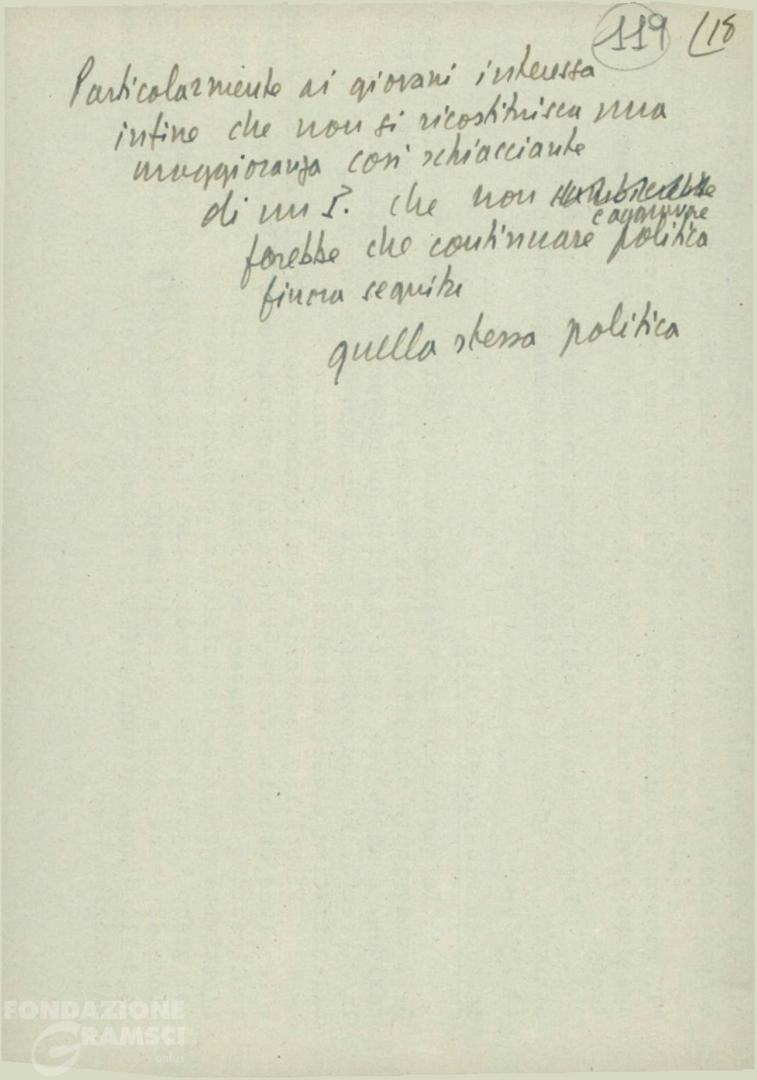 119 (18
Particolarmente ai giovani interessa
infine che non si ricostituisca una
maggioranza così schiacciante
di un P. che non
farebbe che continuare politica
finora seguita
quella stessa politica
FONDAZIONE
GRAMSCI
onlus